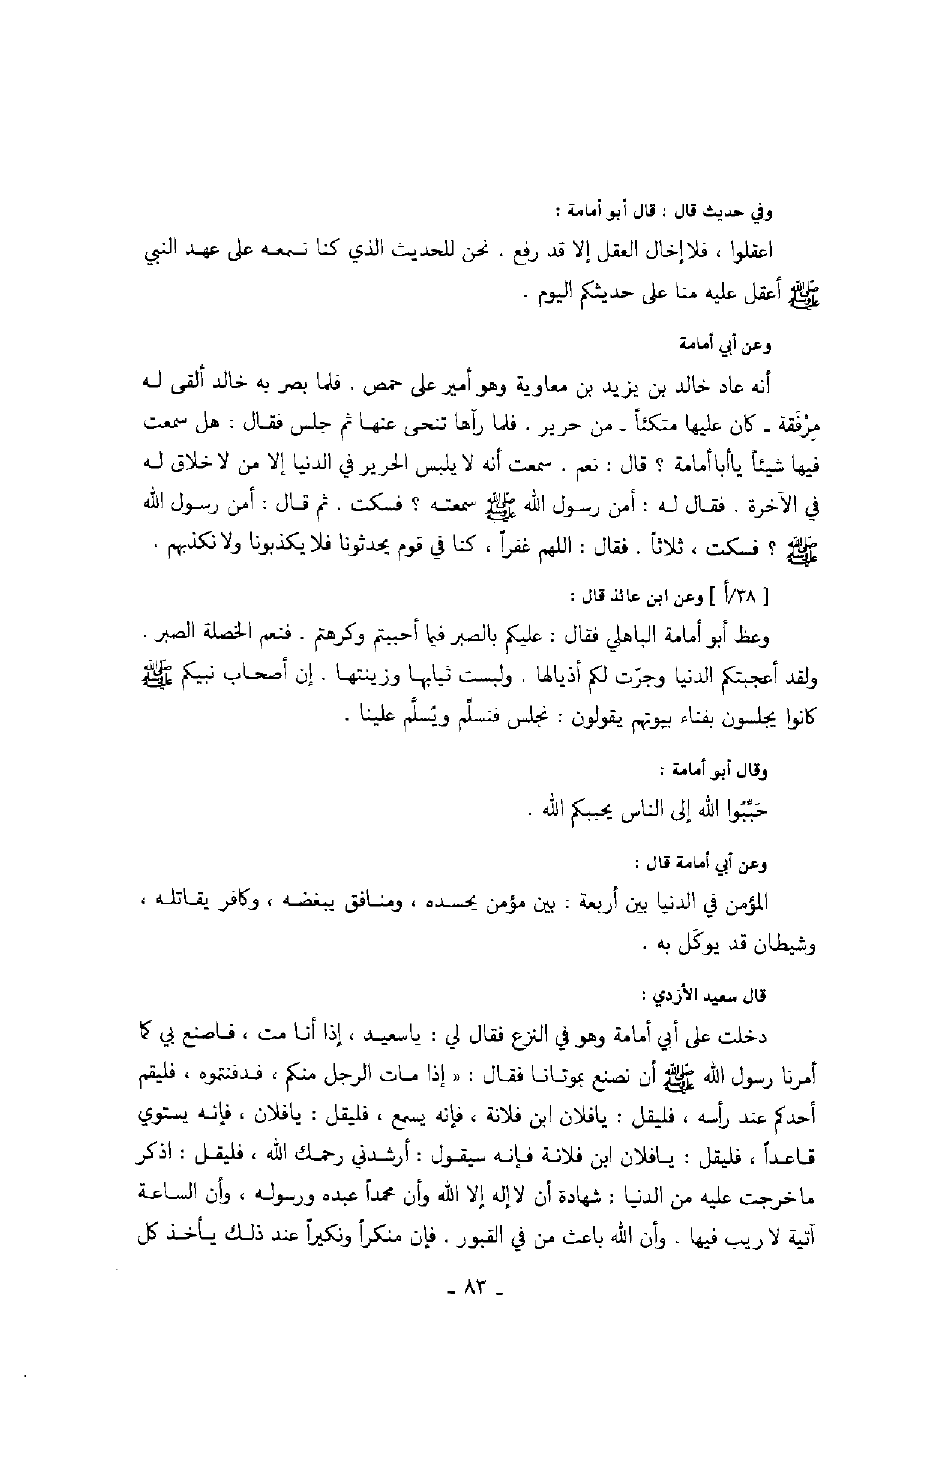 وفي حديث قال : قال أبو أمامة :
اعقلوا ، فلا إخال العقل إلا قد رفع . نحن للحديث الذي كنا نسمعه على عهد النبي
ﷺ أعقل عليه منا على حديثكم اليوم .
وعن أبي أمامة
أنه عاد خالد بن يزيد بن معاوية وهو أمير على حمص . فلما بصر به خالد ألقى له
مِرْفَقة ـ كان عليها متكئاً ـ من حرير . فلما رآها تنحى عنها ثم جلس فقال : هل سمعت
فيها شيئاً ياأبا أمامة ؟ قال : نعم . سمعت أنه لا يلبس الحرير في الدنيا إلا من لا خلاق له
في الآخرة . فقال له : أمن رسول الله ﷺ سمعته ؟ فسكت . ثم قال : أمن رسول الله
ﷺ ؟ فسكت ، ثلاثاً . فقال : اللهم غفراً ، كنا في قوم يحدثونا فلا يكذبونا ولا نكذبهم .
[ ٣٨/أ ] وعن ابن عائذ قال :
وعظ أبو أمامة الباهلي فقال : عليكم بالصبر فيما أحببتم وكرهتم . فنعم الخصلة الصبر .
ولقد أعجبتكم الدنيا وجرّت لكم أذيالها . ولبست ثيابها وزينتها . إن أصحاب نبيكم ﷺ
كانوا يجلسون بفناء بيوتهم يقولون : نجلس فنسلّم ويُسلَّم علينا .
وقال أبو أمامة :
حَبِّبُوا الله إلى الناس يحببكم الله .
وعن أبي أمامة قال :
المؤمن في الدنيا بين أربعة : بين مؤمن يحسده ، ومنافق يبغضه ، وكافر يقاتله ،
وشيطان قد يوكَل به .
قال سعيد الأزدي :
دخلت على أبي أمامة وهو في النزع فقال لي : ياسعيد ، إذا أنا مت ، فاصنع بي كما
أمرنا رسول الله ﷺ أن نصنع بموتانا فقال : « إذا مات الرجل منكم ، فدفنتموه ، فليقم
أحدكم عند رأسه ، فليقل : يافلان ابن فلانة ، فإنه يسمع ، فليقل : يافلان ، فإنه يستوي
قاعداً ، فليقل : يافلان ابن فلانة فإنه سيقول : أرشدني رحمك الله ، فليقل : اذكر
ماخرجت عليه من الدنيا : شهادة أن لاإله إلا الله وأن محمداً عبده ورسوله ، وأن الساعة
آتية لا ريب فيها . وأن الله باعث من في القبور . فإن منكراً ونكيراً عند ذلك يأخذ كل
ـ ٨٣ ـ